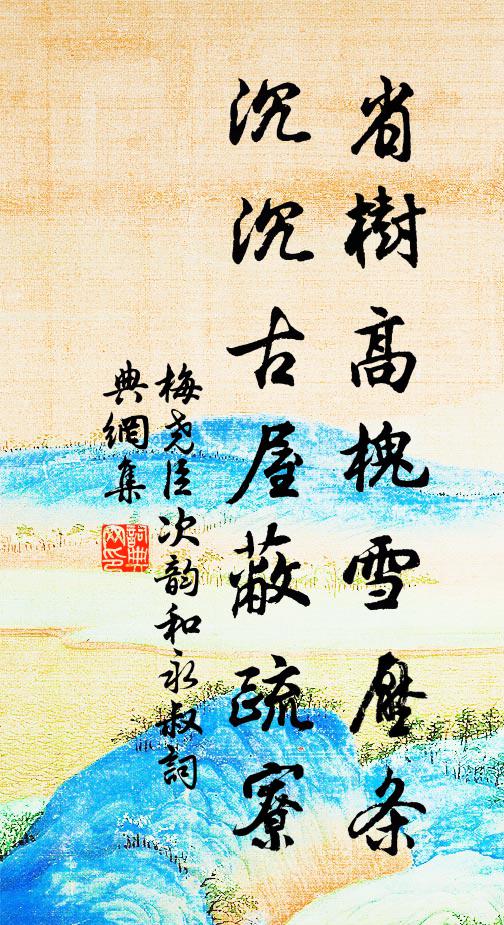 省樹高槐雪壓条
沉沉古屋蔽疏寮
梅堯臣次韵和永叔詞
典網集
詞典